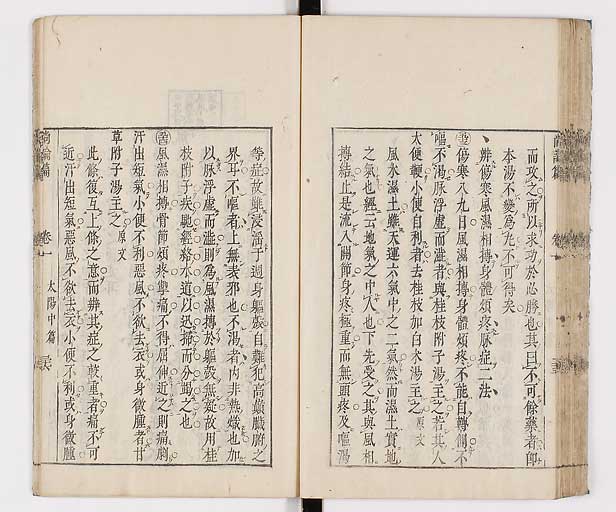 而攻之所以求功於必勝也其曰不可餘藥者即
本湯不變為丸不可得矣
辨傷寒風濕相搏身體煩疼脉症二法
傷寒八九日風濕相搏身體煩疼不能自轉側不
嘔不渴脉浮虛而濇者與桂枝附子湯主之若其人
大便鞕小便自利者去桂枝加白朮湯主之 原文
風水濕土雖天運六氣中之二氣然而濕土實地
之氣也經云地氣之中人也下先受之其與風相
摶結止是流入關節身疼極重而無頭疼及嘔渴
等症故雖浸淫于週身軀殼自難犯高巔臟腑之
界耳不嘔者上無表邪也不渴者内非熱熾也加
以脉浮虛而濇則為風濕搏於軀殼無疑故用桂
枝附子疾馳經絡水道以迅掃而分竭之也
風濕相搏骨節煩疼掣痛不得屈伸近之則痛劇
汗出短氣小便不利惡風不欲去衣或身微腫者甘
草附子湯主之 原文
此條復互上條之意而辨其症之較重者痛不可
近汗出短氣惡風不欲去衣小便不利或身微腫
尚論篇 卷一 太陽中篇